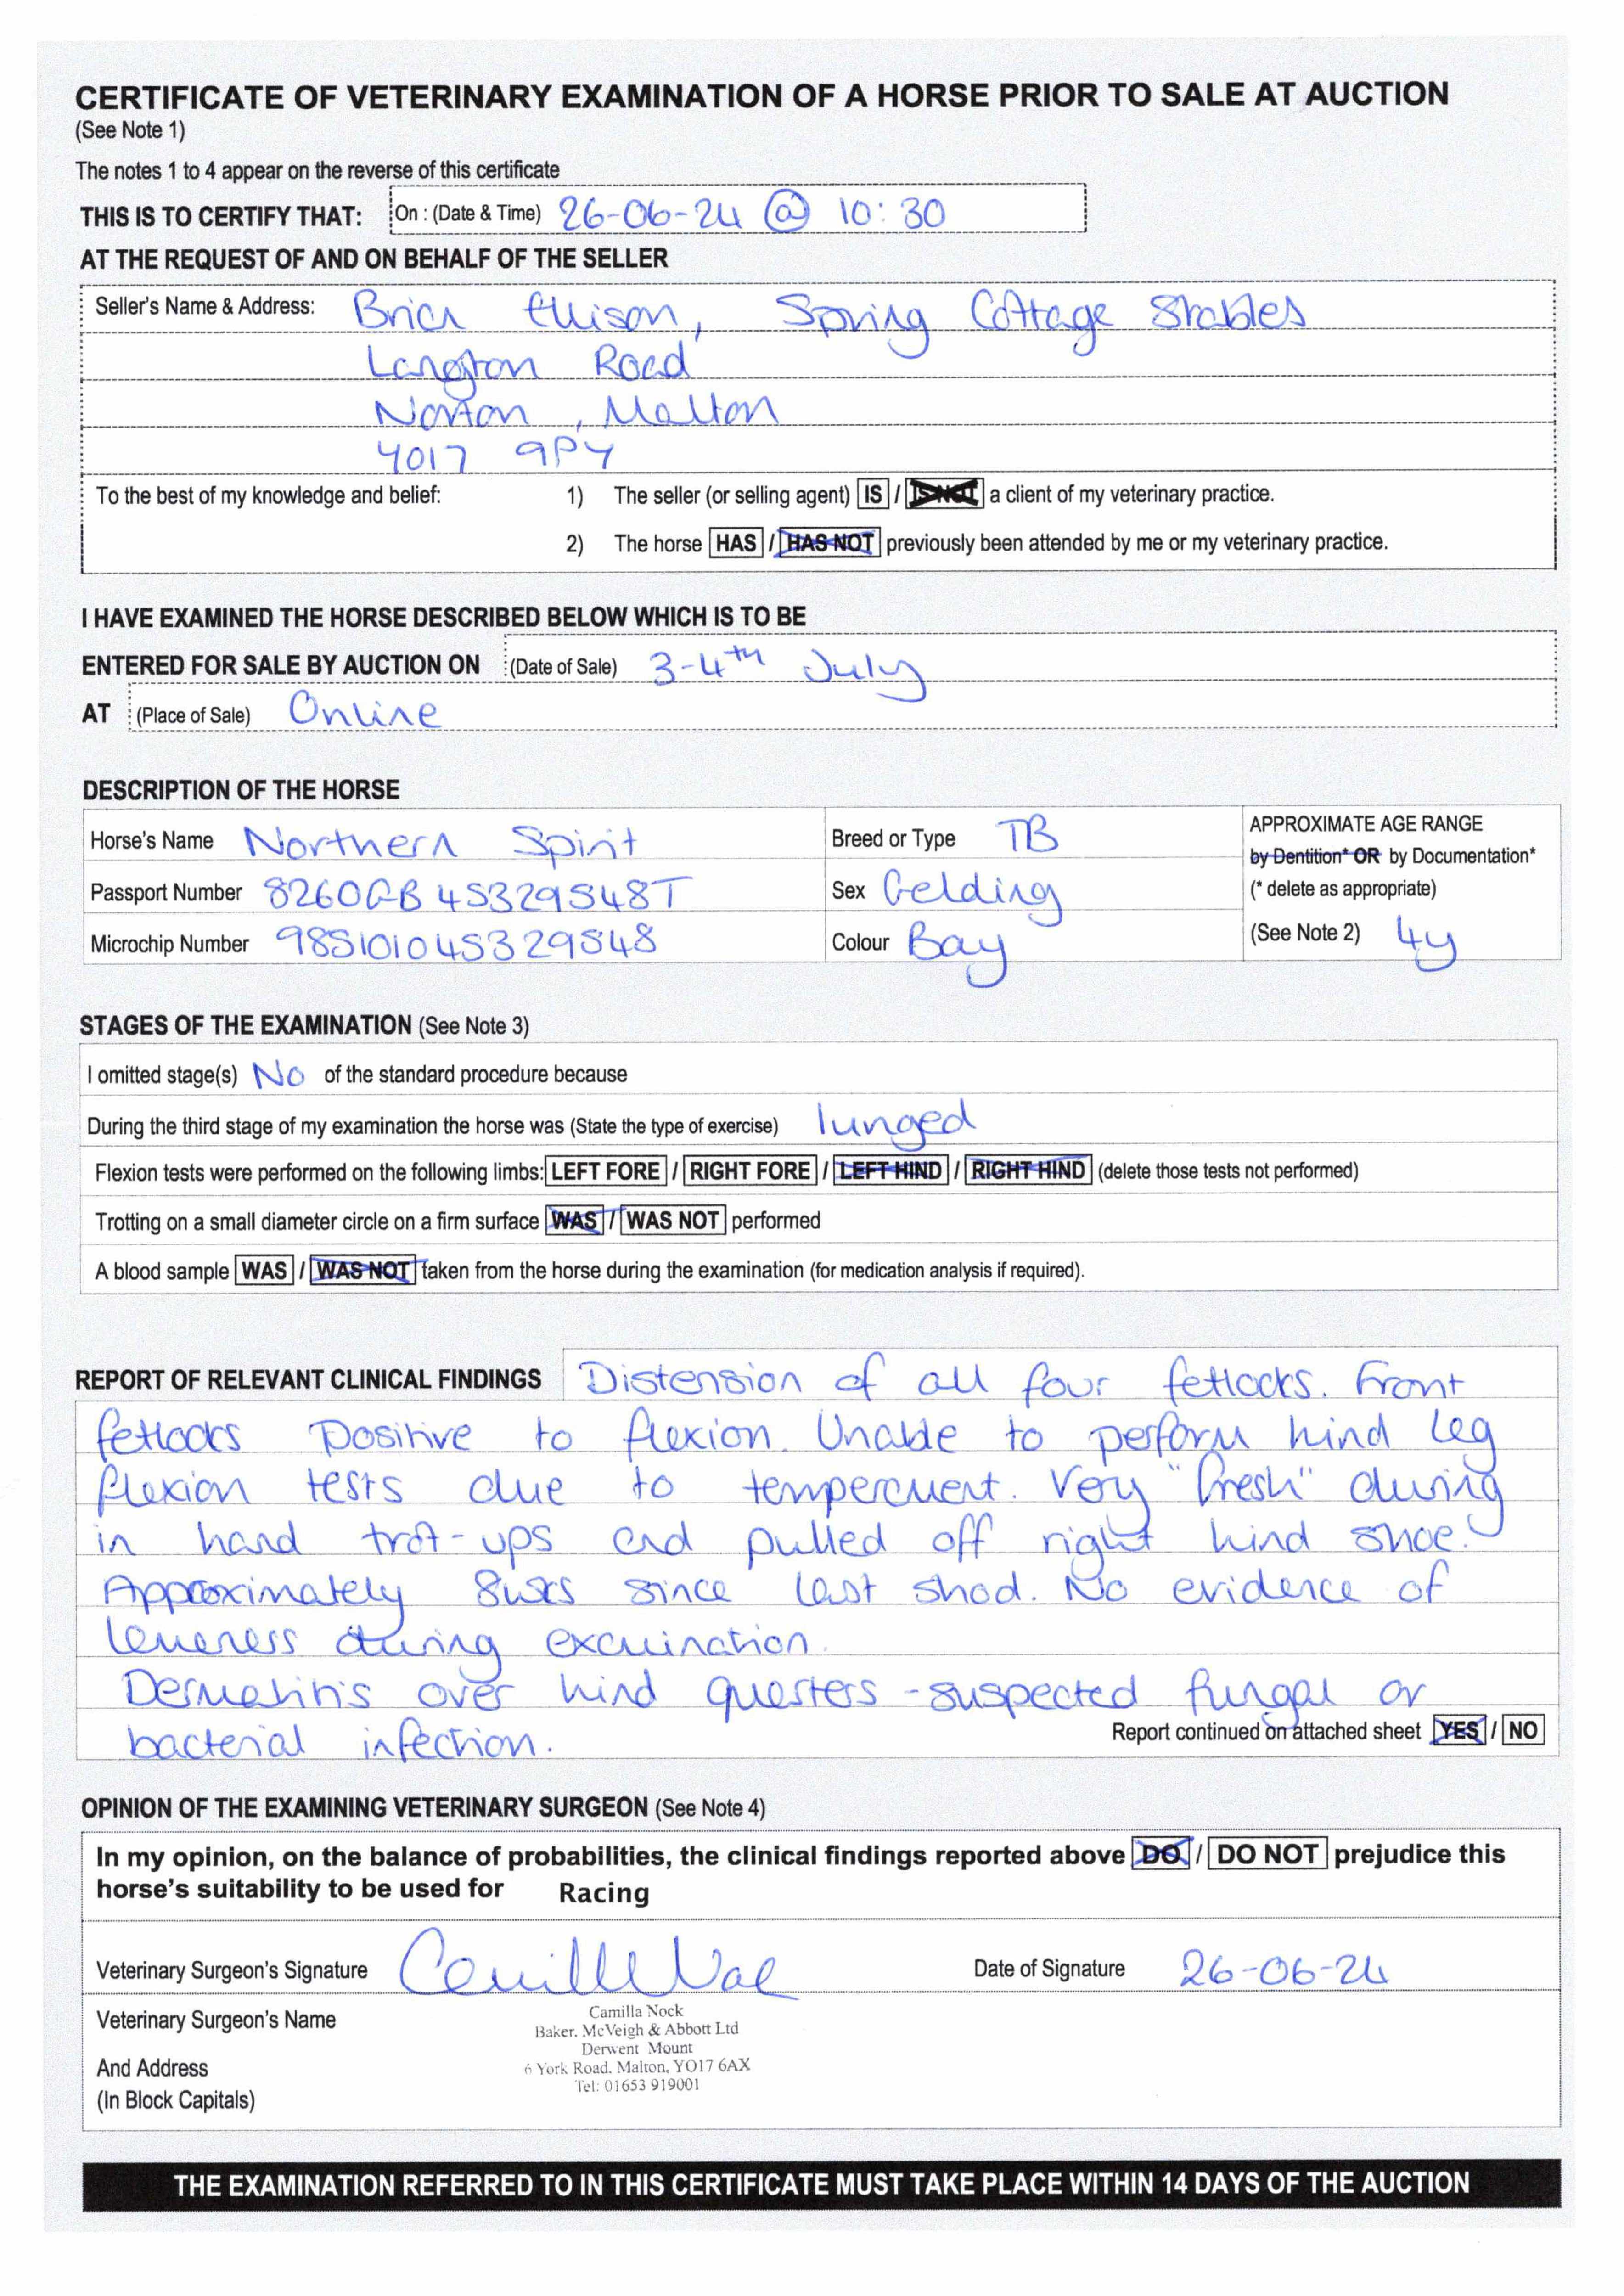 CERTIFICATE OF VETERINARY EXAMINATION OF A HORSE PRIOR TO SALE AT AUCTION
(See Note 1)
The notes 1 to 4 appear on the reverse of this certificate
THIS IS TO CERTIFY THAT: On : (Date & Time) 26-06-24 @ 10:30
AT THE REQUEST OF AND ON BEHALF OF THE SELLER
Seller's Name & Address: Brian Ellison, Spring Cottage Stables
Langton Road
Norton, Malton
YO17 9PY
To the best of my knowledge and belief: 1) The seller (or selling agent) IS / IS NOT a client of my veterinary practice.
2) The horse HAS / HAS NOT previously been attended by me or my veterinary practice.
I HAVE EXAMINED THE HORSE DESCRIBED BELOW WHICH IS TO BE
ENTERED FOR SALE BY AUCTION ON (Date of Sale) 3-4th July
AT (Place of Sale) Online
DESCRIPTION OF THE HORSE
Horse's Name Northern Spirit Breed or Type TB APPROXIMATE AGE RANGE
by Dentition* OR by Documentation*
Passport Number 8260GB45329548T Sex Gelding (* delete as appropriate)
Microchip Number 985101045329548 Colour Bay (See Note 2) 4y
STAGES OF THE EXAMINATION (See Note 3)
I omitted stage(s) No of the standard procedure because
During the third stage of my examination the horse was (State the type of exercise) lunged
Flexion tests were performed on the following limbs: LEFT FORE / RIGHT FORE / LEFT HIND / RIGHT HIND (delete those tests not performed)
Trotting on a small diameter circle on a firm surface WAS / WAS NOT performed
A blood sample WAS / WAS NOT taken from the horse during the examination (for medication analysis if required).
REPORT OF RELEVANT CLINICAL FINDINGS Distension of all four fetlocks. Front
fetlocks positive to flexion. Unable to perform hind leg
flexion tests due to temperament. Very "fresh" during
in hand trot-ups and pulled off right hind shoe.
Approximately 8wks since last shod. No evidence of
lameness during examination.
Dermatitis over hind quarters - suspected fungal or
bacterial infection.
Report continued on attached sheet YES / NO
OPINION OF THE EXAMINING VETERINARY SURGEON (See Note 4)
In my opinion, on the balance of probabilities, the clinical findings reported above DO / DO NOT prejudice this
horse's suitability to be used for Racing
Veterinary Surgeon's Signature Date of Signature 26-06-24
Veterinary Surgeon's Name
And Address
(In Block Capitals)
Camilla Nock
Baker, McVeigh & Abbott Ltd
Derwent Mount
6 York Road, Malton, YO17 6AX
Tel: 01653 919001
THE EXAMINATION REFERRED TO IN THIS CERTIFICATE MUST TAKE PLACE WITHIN 14 DAYS OF THE AUCTION